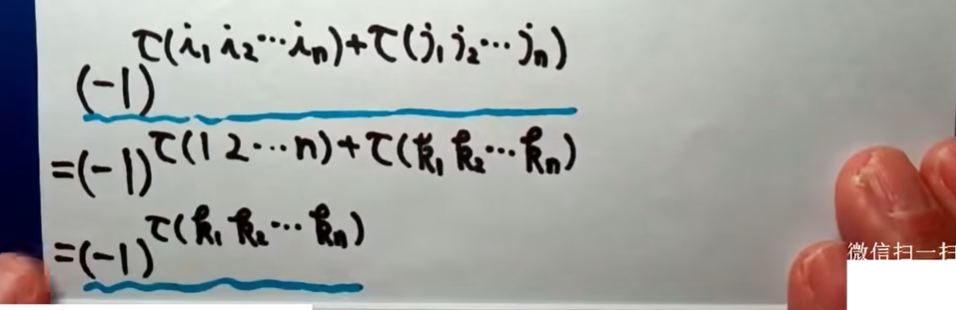 (-1)^{τ(i₁ i₂ ⋯ iₙ)+τ(j₁ j₂ ⋯ jₙ)}
=(-1)^{τ(1 2 ⋯ n)+τ(k₁ k₂ ⋯ kₙ)}
=(-1)^{τ(k₁ k₂ ⋯ kₙ)}
微信扫一扫